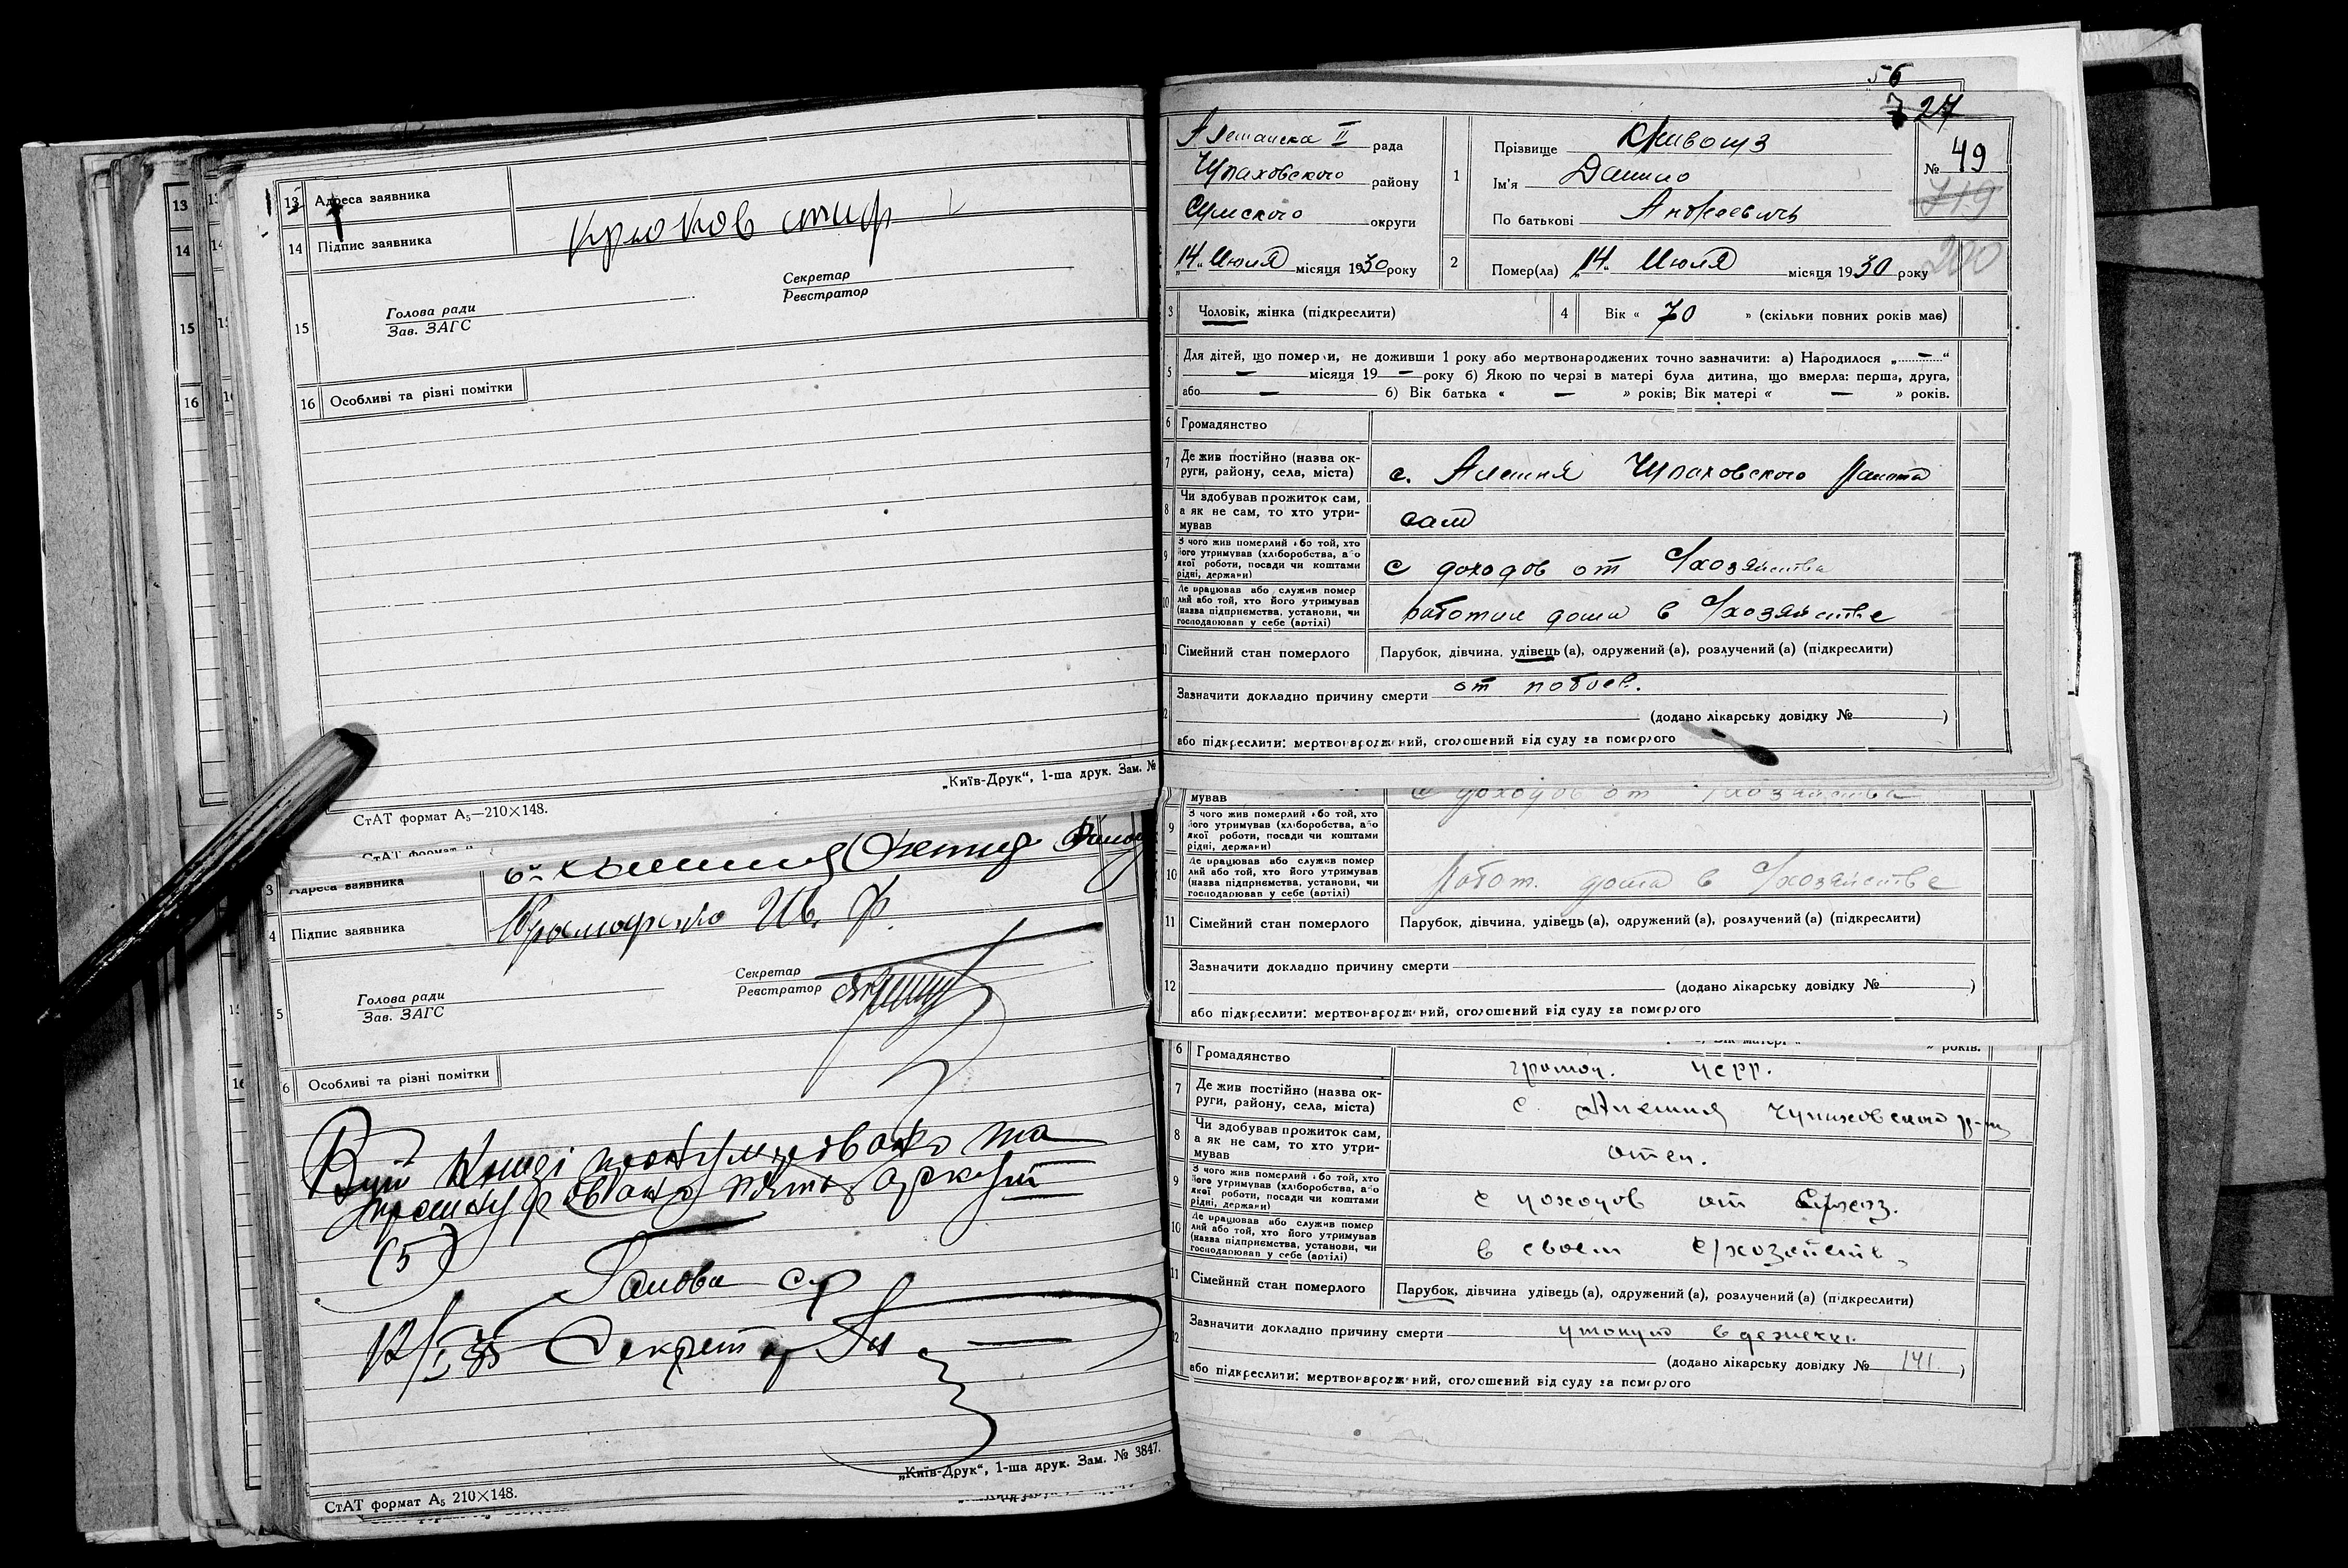 13 Адреса заявника
14 Підпис заявника Крюков стиф
Секретар
Реєстратор
15 Голова ради
Зав. ЗАГС
16 Особливі та різні помітки
„Київ-Друк“, 1-ша друк. Зам. №
СтАТ формат А₅—210×148.
3 Адреса заявника
4 Підпис заявника Ів. Ф.
Секретар
Реєстратор
5 Голова ради
Зав. ЗАГС
6 Особливі та різні помітки
Книзі та
(5)
Голова с/р
Секретар
„Київ-Друк“, 1-ша друк. Зам. № 3847.
СтАТ формат А₅ 210×148.
56
7 27
Алешанска II рада
Чупаховского району
Сумского округи
„14“ Июля місяця 1930 року
1 Прізвище
Ім'я Данило
По батькові Андреевичъ
№ 49
719
200
2 Помер(ла) „14“ Июля місяця 1930 року
3 Чоловік, жінка (підкреслити)
4 Вік « 70 » (скільки повних років має)
5 Для дітей, що померли, не доживши 1 року або мертвонароджених точно зазначити: а) Народилося „ — “
— місяця 19 — року б) Якою по черзі в матері була дитина, що вмерла: перша, друга,
або — б) Вік батька « — » років; Вік матері « — » років.
6 Громадянство
7 Де жив постійно (назва ок-
руги, району, села, міста) с. Алешня Чупаховского
8 Чи здобував прожиток сам,
а як не сам, то хто утри-
мував сам
9 З чого жив померлий або той, хто
його утримував (хліборобства, або
якої роботи, посади чи коштами
рідні, держави) с доходов от с/хозяйства
10 Де працював або служив помер
лий або той, хто його утримував
(назва підприємства, установи, чи
господарював у себе (артілі) работал дома в с/хозяйстве
Сімейний стан померлого Парубок, дівчина, удівець (а), одружений (а), розлучений (а) (підкреслити)
Зазначити докладно причину смерти от побоев.
(додано лікарську довідку № )
або підкреслити: мертвонароджений, оголошений від суду за померлого
мував с доходов от с/хозяйства
9 З чого жив померлий або той, хто
його утримував (хліборобства, або
якої роботи, посади чи коштами
рідні, держави)
10 Де працював або служив помер
лий або той, хто його утримував
(назва підприємства, установи, чи
господарював у себе (артілі) работ. дома в с/хозяйстве
11 Сімейний стан померлого Парубок, дівчина, удівець (а), одружений (а), розлучений (а) (підкреслити)
Зазначити докладно причину смерти
12 (додано лікарську довідку № )
або підкреслити: мертвонароджений, оголошений від суду за померлого
6 Громадянство
7 Де жив постійно (назва ок-
руги, району, села, міста) с. Алешня Чупаховского р-на
8 Чи здобував прожиток сам,
а як не сам, то хто утри-
мував отец.
9 З чого жив померлий або той, хто
його утримував (хліборобства, або
якої роботи, посади чи коштами
рідні, держави) с доходов от с/хоз.
10 Де працював або служив помер
лий або той, хто його утримував
(назва підприємства, установи, чи
господарював у себе (артілі) в своем с/хозяйств.
11 Сімейний стан померлого Парубок, дівчина удівець (а), одружений (а), розлучений (а) (підкреслити)
Зазначити докладно причину смерти утонул в
(додано лікарську довідку № 141 )
або підкреслити: мертвонароджений, оголошений від суду за померлого